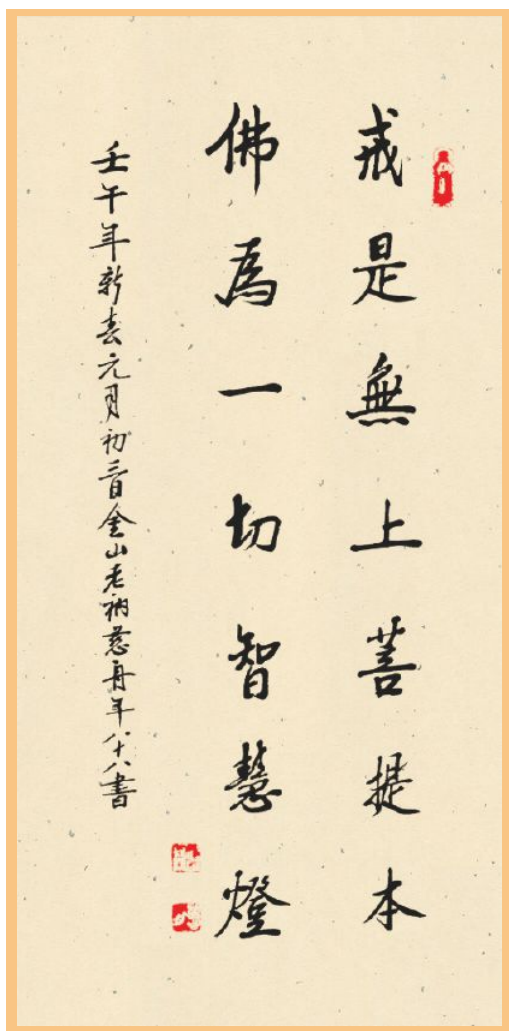 戒是無上菩提本
佛為一切智慧燈
壬午年新春元月初三日金山老衲慈舟年八十八書